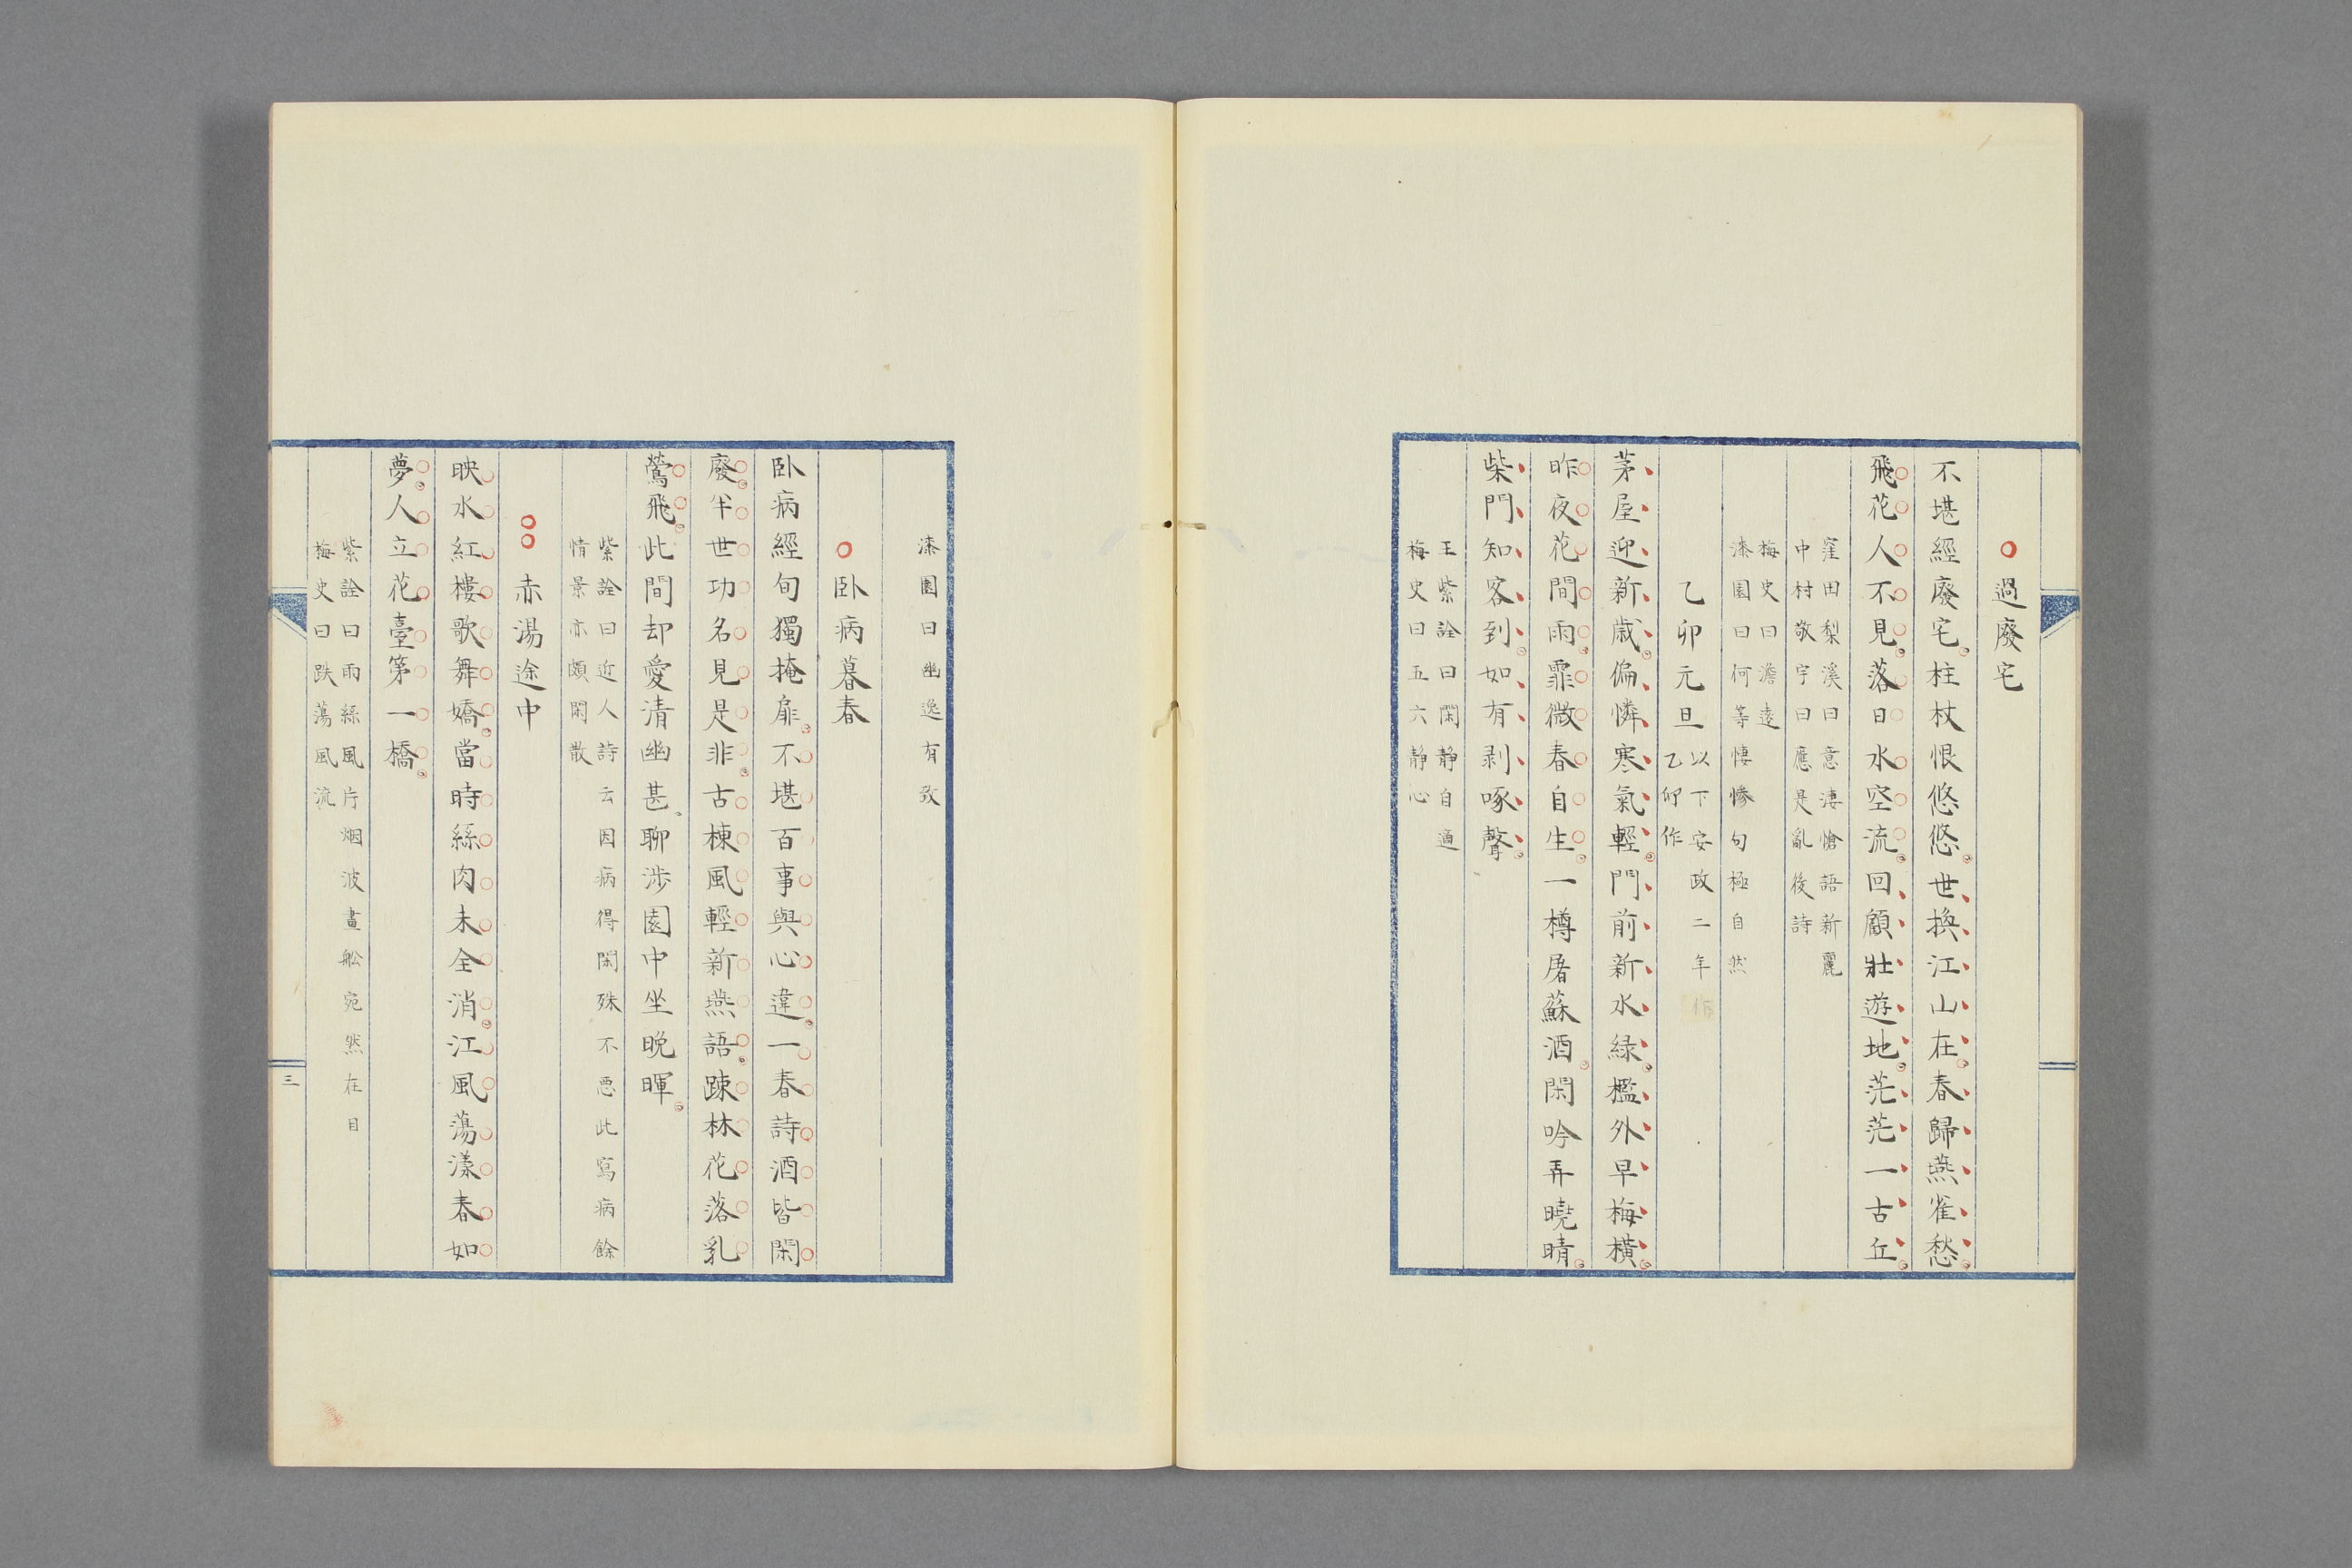 過廢宅
不堪經廢宅柱杖恨悠悠世換江山在春歸燕雀愁
飛花人不見落日水空流回顧壯遊地茫茫一古丘
窪田梨溪曰意淒愴語新麗
中村敬宇曰應是亂後詩
梅史曰澹遠
漆園曰何等悽慘句極自然
乙卯元旦
以下安政二年
乙卯作
茅屋迎新歲偏憐寒氣輕門前新水綠檻外早梅橫
昨夜花間雨霏微春自生一樽屠蘇酒閑吟弄曉晴
柴門知客到如有剥啄聲
王紫詮曰閑靜自適
梅史曰五六靜心
漆園曰幽逸有致
臥病暮春
臥病經旬獨掩扉不堪百事與心違一春詩酒皆閑
廢半世功名見是非古棟風輕新燕語疎林花落乳
鶯飛此間却愛清幽甚聊涉園中坐晩暉
紫詮曰近人詩云因病得閑殊不惡此寫病餘
情景亦頗閑散
赤湯途中
映水紅樓歌舞嬌當時絲肉未全消江風蕩漾春如
夢人立花臺第一橋
紫詮曰雨絲風片烟波畫舩宛然在目
梅史曰跌蕩風流
三